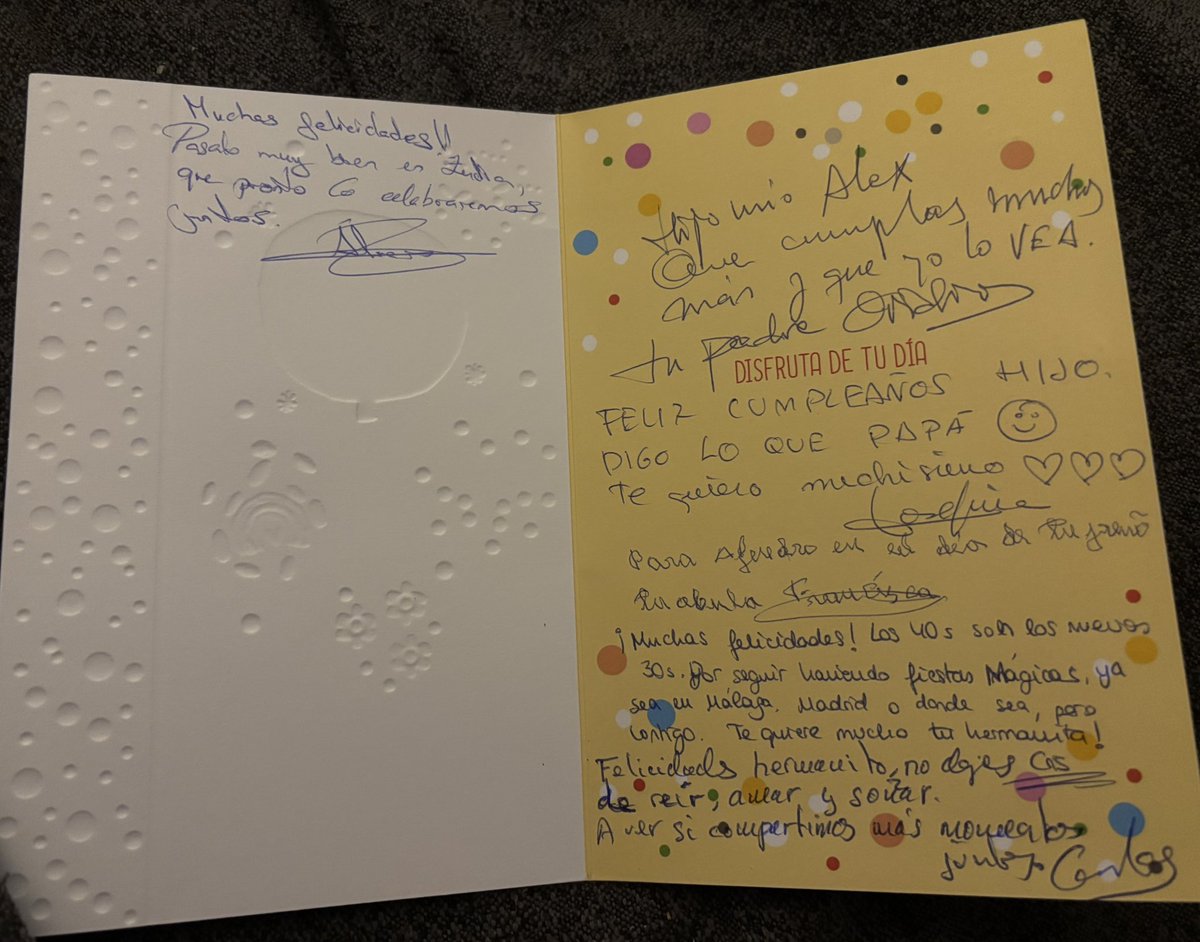 Muchas felicidades!!
Pasalo muy bien en India,
que pronto lo celebraremos
juntos.
Hijo mio Alex
Que cumplas muchos
más y que yo lo VEA.
tu Padre
DISFRUTA DE TU DÍA
FELIZ CUMPLEAÑOS HIJO.
DIGO LO QUE PAPÁ
Te quiero muchisimo
Josefina
Para en el dia de tu
tu abuela Francisca
¡Muchas felicidades! Los 40s son los nuevos
30s. Por seguir haciendo fiestas Mágicas, ya
sea en Málaga, Madrid o donde sea, pero
contigo. Te quiere mucho tu hermanita!
Cris
Felicidads hermanito, no dejes
de reir, amar y soñar.
A ver si compartimos más momentos
juntos Carlos